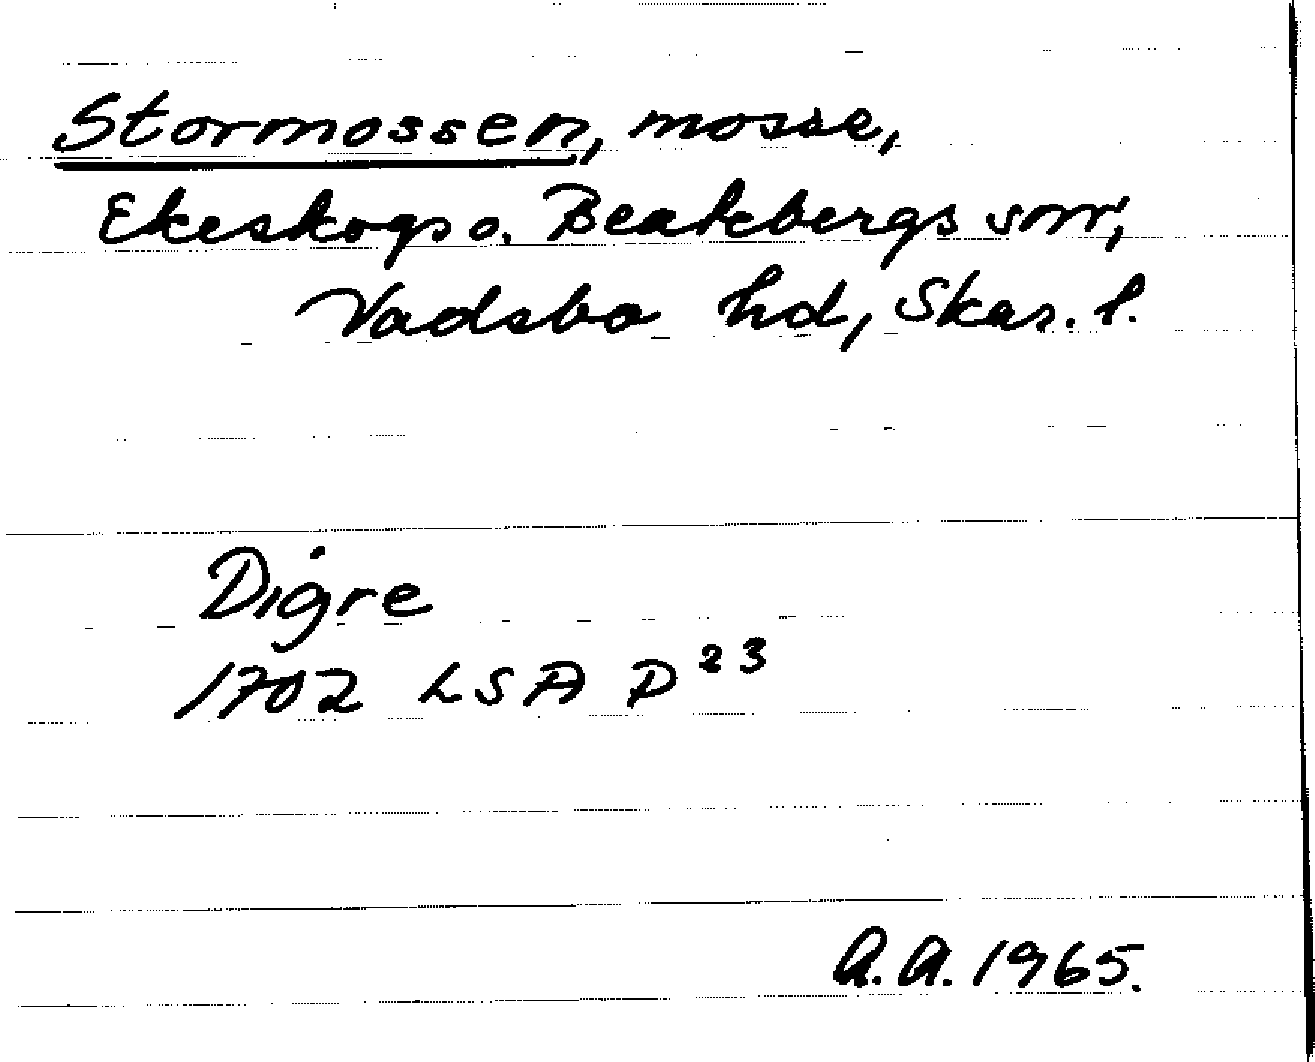 Stormossen, mosse,
Ekeskogs o. Beatebergs snr,
Vadsbo hd, Skar. l.
Digre
1702 LSA P 23
A.A. 1965.